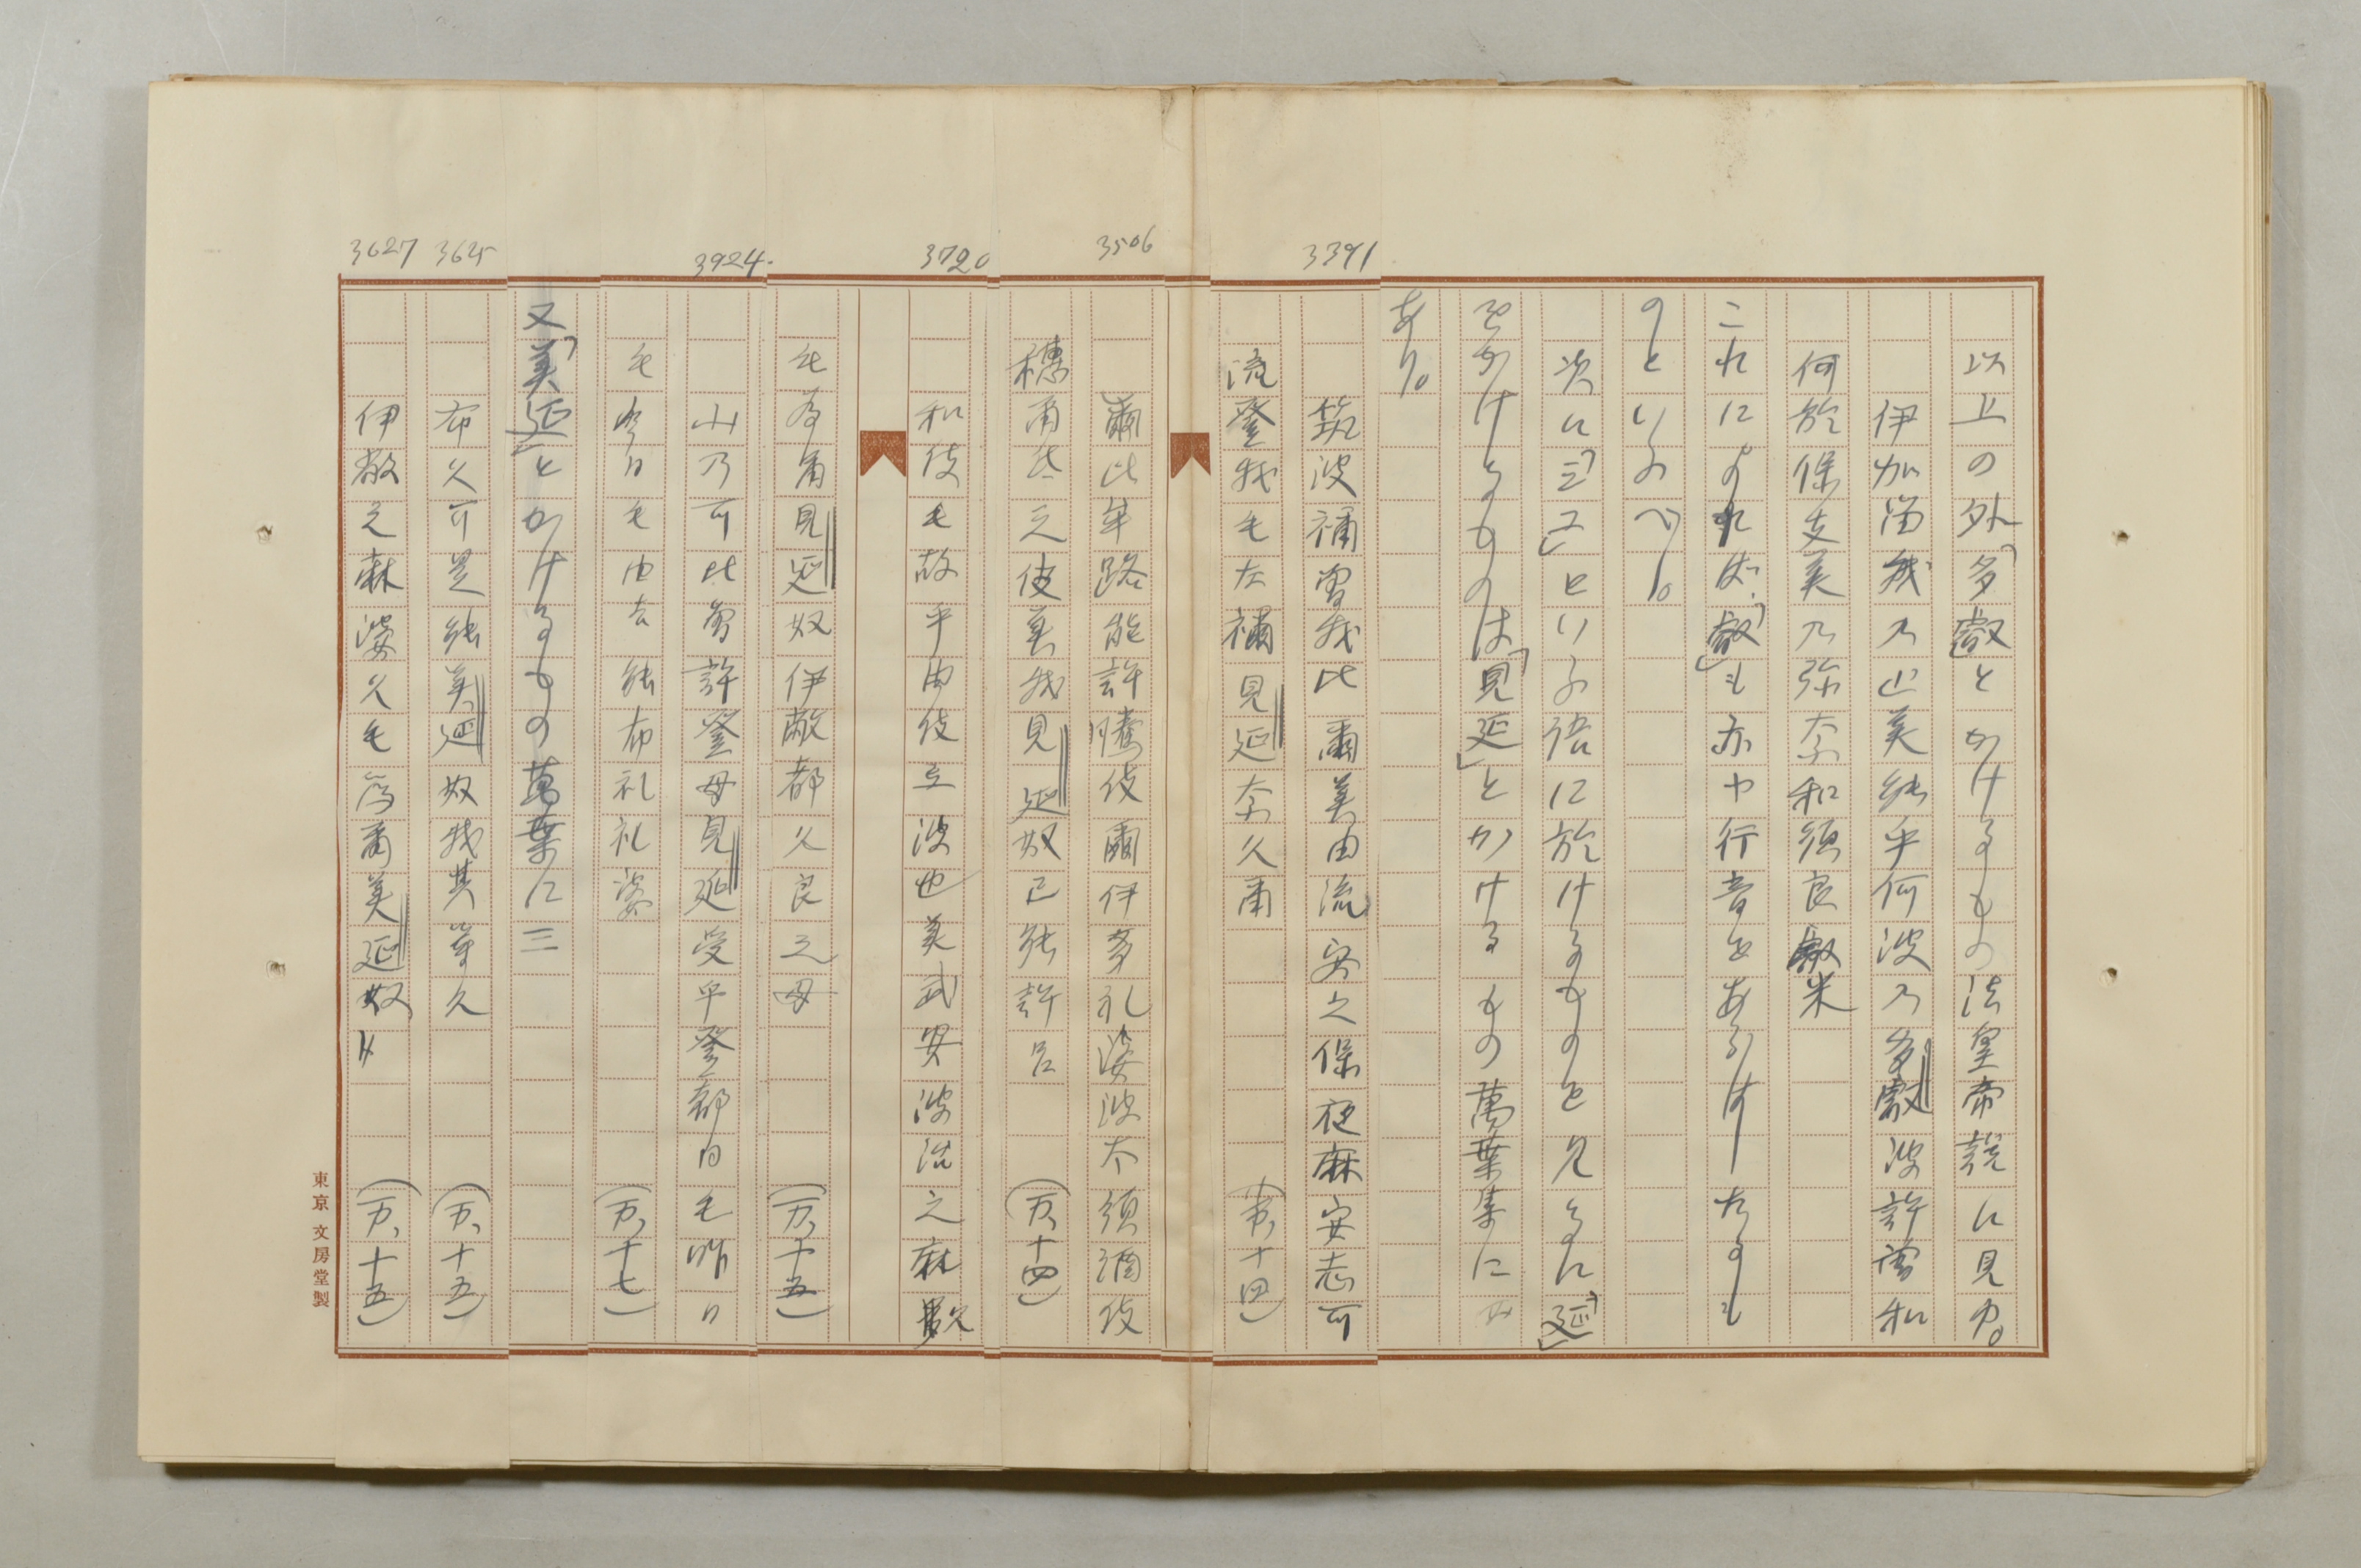 以上の外「多敵」とかけるもの法皇帝説に見ゆ。
伊加留我乃止美能乎何波乃多敵波許曾和
何於保支美乃弥奈和須良叡米
これによれば、「叡」も亦や行音をあらはしたるも
のといふべし。
次に「ミエ」といふ語に於けるものを見るに「延」
をかけるものは「見延」とかけるもの萬葉集に
あり。
3391
筑波祢曾我比爾美由流安之保夜麻安志可
流登我毛左祢見延奈久爾
(万、十四)
3506
爾比牟路能許騰伎爾伊多礼婆波太須酒伎
穂爾弖之伎美我見延奴己能許呂
(万、十四)
3720
和伎毛故乎由伎且波也美武安波治之麻
毛為爾見延奴伊敝都久良之母
(万、十五)
3924.
山乃可比曾許登母見延受乎登都日毛昨日
毛今日毛由吉能布礼礼婆
(万、十七)
又「美延」とかけるもの萬葉に三
3625
布久可是能美延奴我其登久
(万、十五)
3627
伊敝之麻婆久毛為爾美延奴
(万、十五)
東京 文房堂製